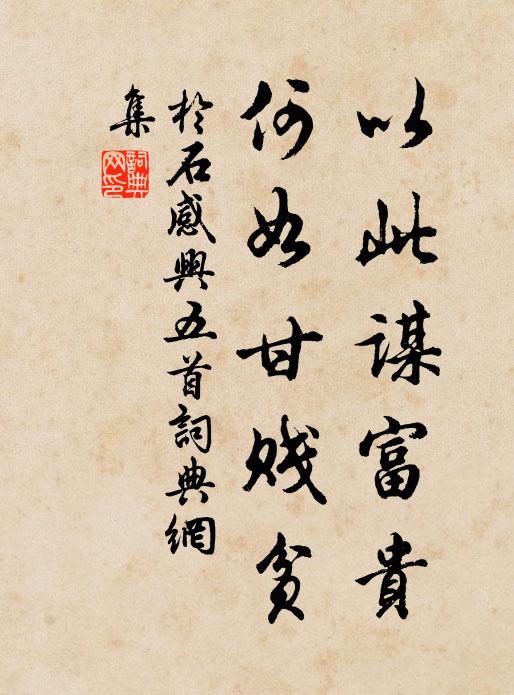 以此謀富貴
何如甘賤貧
於石感興五首詞典網
集
詞典
网印